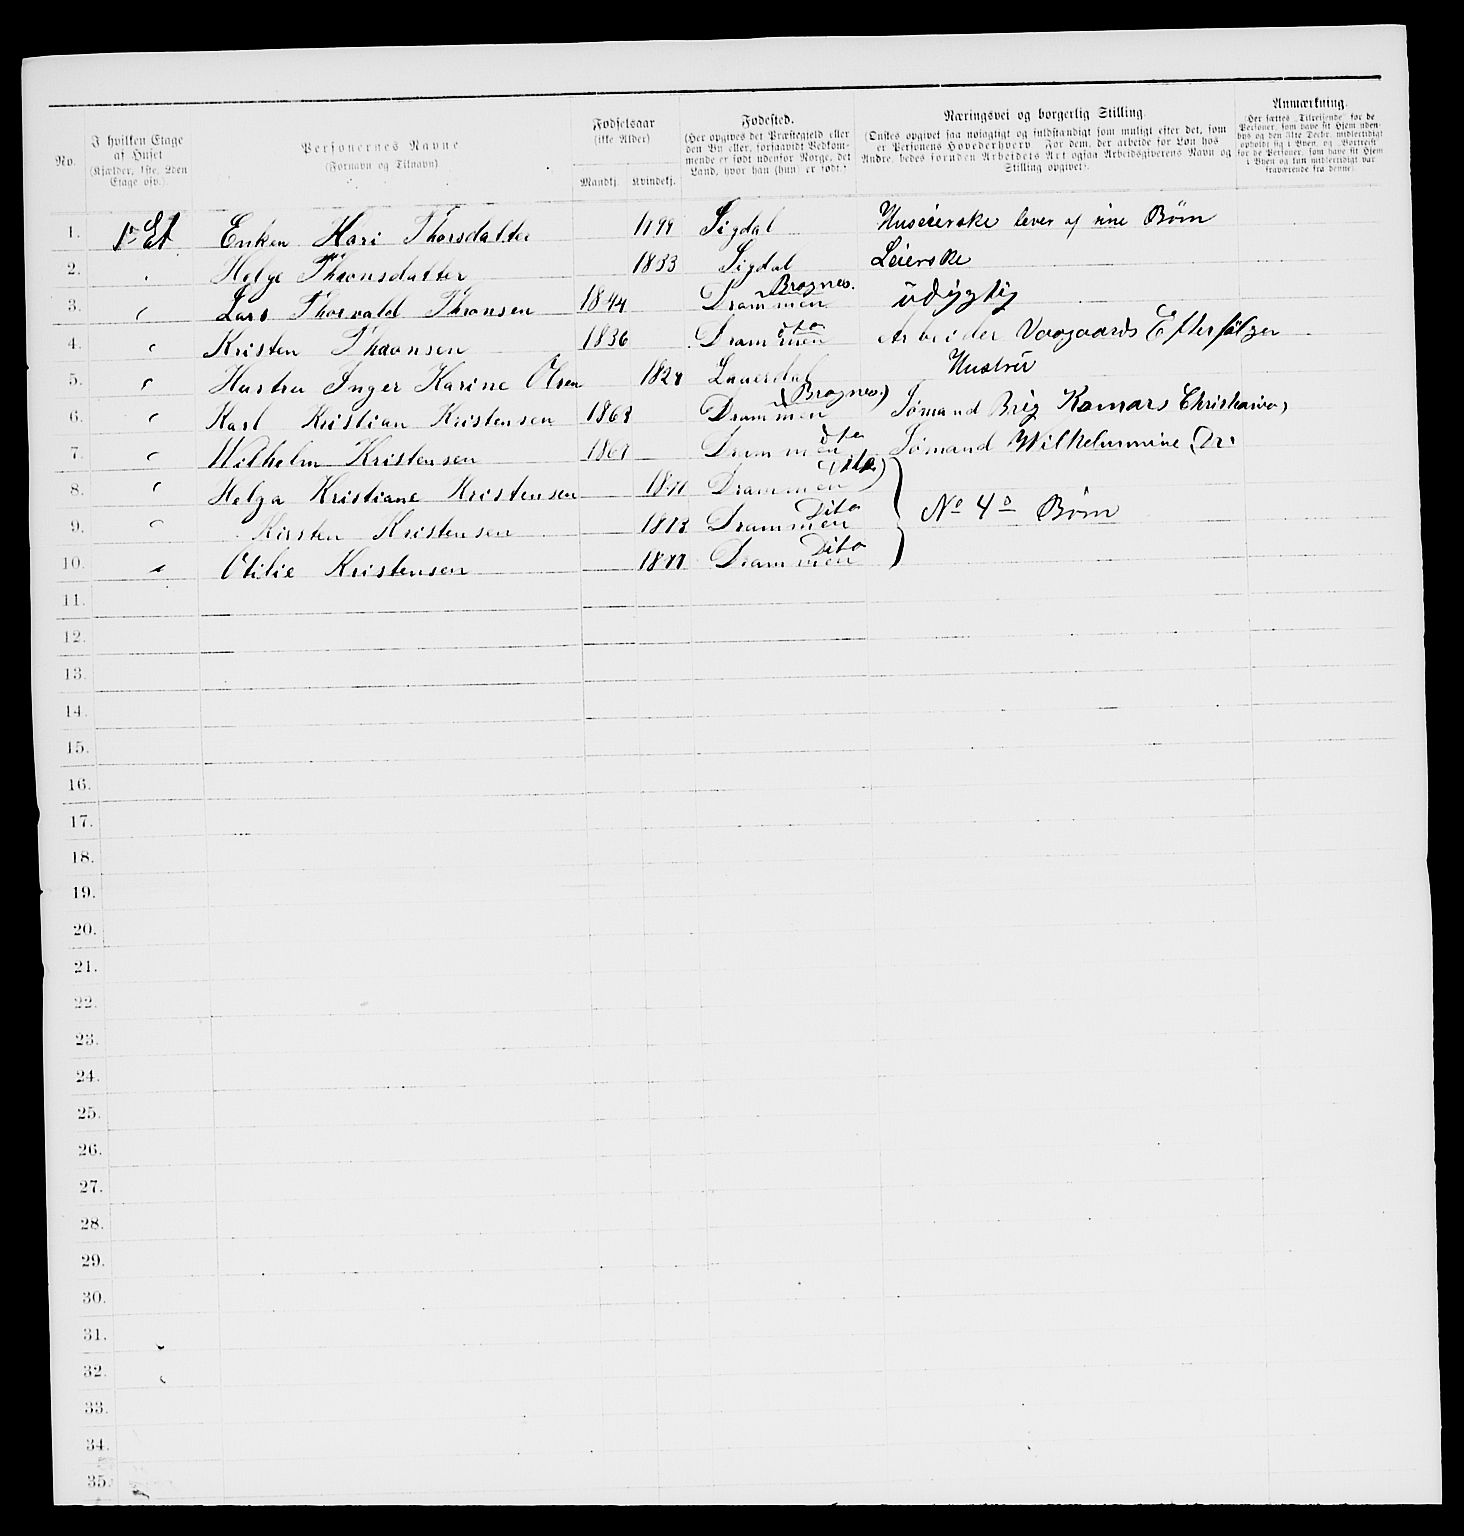 No.
I hvilken Etage
af Huset
(Kjælder, 1ste, 2den
Etage osv.).
Personernes Navne
(Fornavn og Tilnavn)
Fødselsaar
(ikke Alder)
Mandkj. Kvindekj.
Fødested.
(Her opgives det Præstegjeld eller
den By eller, forsaavidt Vedkom-
mende er født udenfor Norge, det
Land, hvor han (hun) er født.)
Næringsvei og borgerlig Stilling
(Ønskes opgivet saa nøiagtigt og fuldstændigt som muligt efter det, som
er Personens Hovederhverv. For dem, der arbeide for Løn hos
Andre, bedes foruden Arbeidets Art ogsaa Arbeidsgiverens Navn og
Stilling opgivet.)
Anmærkning.
(Her sættes „Tilreisende" for de
Personer, som have sit Hjem uden-
bys og den 31te Decbr. midlertidigt
opholdt sig i Byen, og „Bortreist"
for de Personer, som have sit Hjem
i Byen og kun midlertidigt var
fraværende fra denne)
1. 1ste Et Enken Kari Thorsdatter 1799 Sigdal Huseierske lever af sine Børn
2. Helge Thronsdatter 1833 Sigdal Leierske
3. " Lars Thorvald Thronsen 1844 Drammen Bragnes. udygtig
4. " Kristen Thronsen 1836 Drammen dto Arbeider Vaagaards Efterfølger
5. " Hustru Inger Karine Olsen 1827 Lauerdal Hustru
6. " Karl Kristian Kristensen 1863 Drammen (Bragnes) Sømand Brig Komars Christiania
7. " Wilhelm Kristensen 1867 Drammen dto Sømand Wilhelmine (Dr.
8. " Helga Kristiane Kristensen 1871 Drammen Dito)
9. " Kirsten Kristensen 1873 Drammen Dito } No 4 Børn
10. " Otilie Kristensen 1877 Drammen Dito
11.
12.
13.
14.
15.
16.
17.
18.
19.
20.
21.
22.
23.
24.
25.
26.
27.
28.
29.
30.
31.
32.
33.
34.
35.